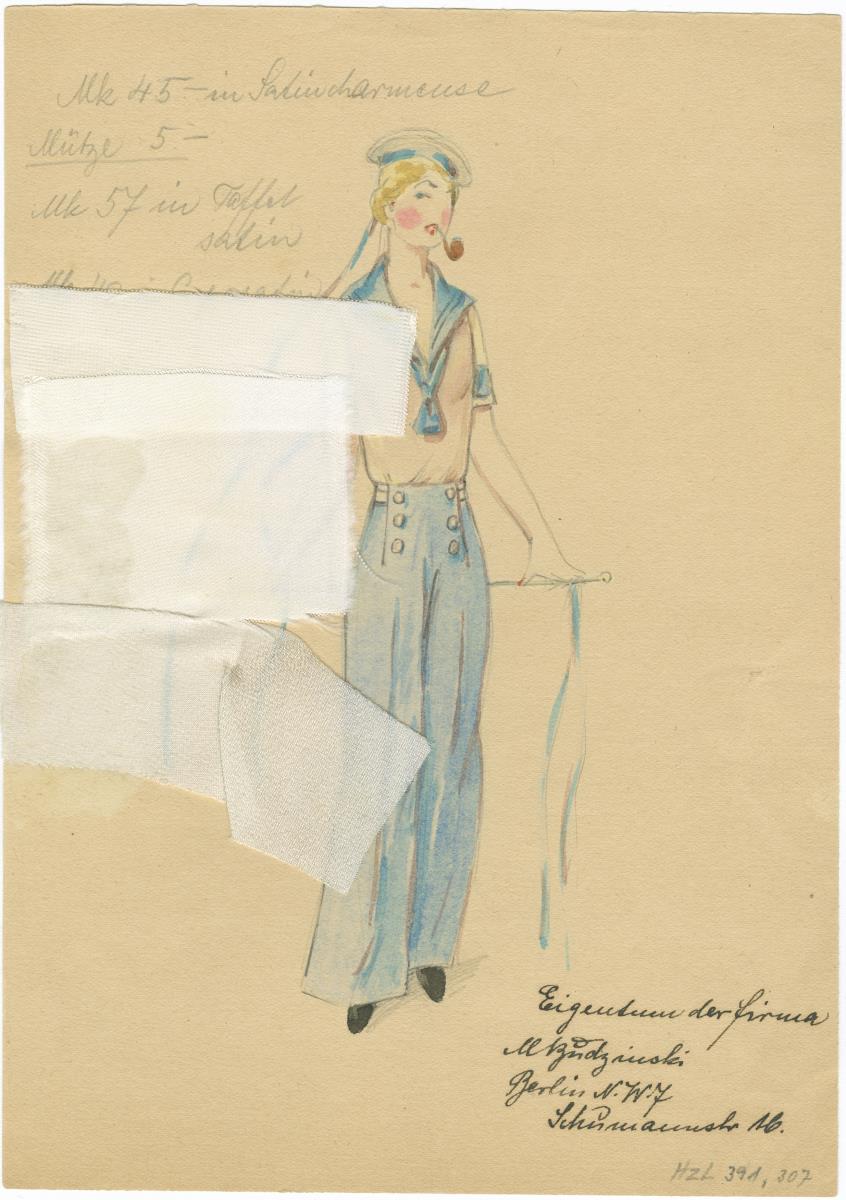 Mk 45.- in Satincharmeuse
Mütze 5.-
Mk 57 in Taffet
satin
Mk
Eigentum der firma
M Budzinski
Berlin N.W.7
Schumannstr 16.
HZL 391, 307